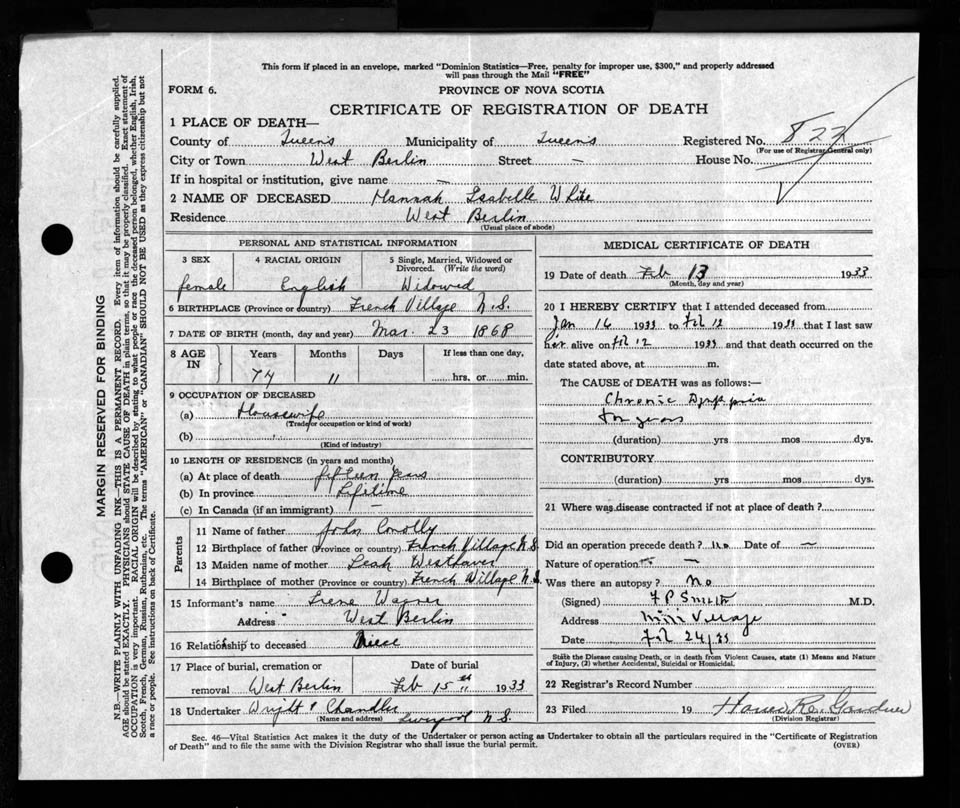 This form if placed in an envelope, marked "Dominion Statistics—Free, penalty for improper use, $300," and properly addressed
will pass through the Mail "FREE"
FORM 6.
PROVINCE OF NOVA SCOTIA
CERTIFICATE OF REGISTRATION OF DEATH
1 PLACE OF DEATH—
County of Queens Municipality of Queens Registered No. 822
(For use of Registrar General only)
City or Town West Berlin Street — House No.
If in hospital or institution, give name —
2 NAME OF DECEASED Hannah Isabelle White
Residence West Berlin
(Usual place of abode)
PERSONAL AND STATISTICAL INFORMATION
3 SEX 4 RACIAL ORIGIN 5 Single, Married, Widowed or Divorced. (Write the word)
female English Widowed
6 BIRTHPLACE (Province or country) French Village N.S.
7 DATE OF BIRTH (month, day and year) Mar. 23 1868
8 AGE IN Years Months Days If less than one day,
74 11 hrs. or min.
9 OCCUPATION OF DECEASED
(a) Housewife
(Trade or occupation or kind of work)
(b)
(Kind of industry)
10 LENGTH OF RESIDENCE (in years and months)
(a) At place of death fifteen years
(b) In province Lifetime
(c) In Canada (if an immigrant) —
Parents
11 Name of father John Conolly
12 Birthplace of father (Province or country) French Village N.S.
13 Maiden name of mother Leah Westhaver
14 Birthplace of mother (Province or country) French Village N.S.
15 Informant's name Irene Wagner
Address " West Berlin
16 Relationship to deceased Niece
17 Place of burial, cremation or Date of burial
removal West Berlin Feb 15th 1933
18 Undertaker Wright & Chandler
(Name and address) Liverpool N.S.
MEDICAL CERTIFICATE OF DEATH
19 Date of death Feb 13 1933
(Month, day and year)
20 I HEREBY CERTIFY that I attended deceased from
Jan 16 1933 to Feb 12 1933 that I last saw
her alive on Feb 12 1933 and that death occurred on the
date stated above, at m.
The CAUSE of DEATH was as follows:—
Chronic
years
(duration) yrs mos dys.
CONTRIBUTORY
(duration) yrs mos dys.
21 Where was disease contracted if not at place of death?
Did an operation precede death? No Date of —
Nature of operation —
Was there an autopsy? No
(Signed) F P Smith M.D.
Address Mill Village
Date Feb 24/33
State the Disease causing Death, or in death from Violent Causes, state (1) Means and Nature
of Injury, (2) whether Accidental, Suicidal or Homicidal.
22 Registrar's Record Number
23 Filed 19 Gardner
(Division Registrar)
Sec. 46—Vital Statistics Act makes it the duty of the Undertaker or person acting as Undertaker to obtain all the particulars required in the "Certificate of Registration
of Death" and to file the same with the Division Registrar who shall issue the burial permit.
(OVER)
MARGIN RESERVED FOR BINDING
N.B.—WRITE PLAINLY WITH UNFADING INK—THIS IS A PERMANENT RECORD. Every item of information should be carefully supplied.
AGE should be stated EXACTLY. PHYSICIANS should STATE CAUSE OF DEATH in plain terms, so that it may be properly classified. Exact statement of
OCCUPATION is very important. RACIAL ORIGIN will be described by stating to what people or race the deceased person belonged, whether English, Irish,
Scotch, French, German, Russian, Ruthenian, etc. The terms "AMERICAN" or "CANADIAN" SHOULD NOT BE USED as they express citizenship but not
a race or people. See instructions on back of Certificate.